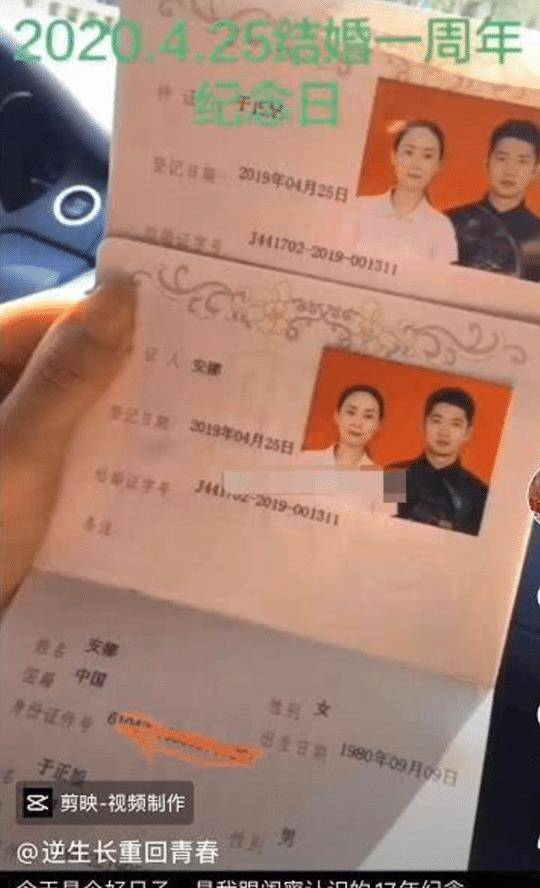 2020.4.25结婚一周年
纪念日
持证
登记日期 2019年04月25日
结婚证字号 J441702-2019-001311
证人 安娜
登记日期 2019年04月25日
结婚证字号 J441702-2019-001311
备注
姓名 安娜
国籍 中国
性别 女
身份证件号
出生日期 1980年09月09日
名 于正旭
性别 男
剪映-视频制作
@逆生长重回青春